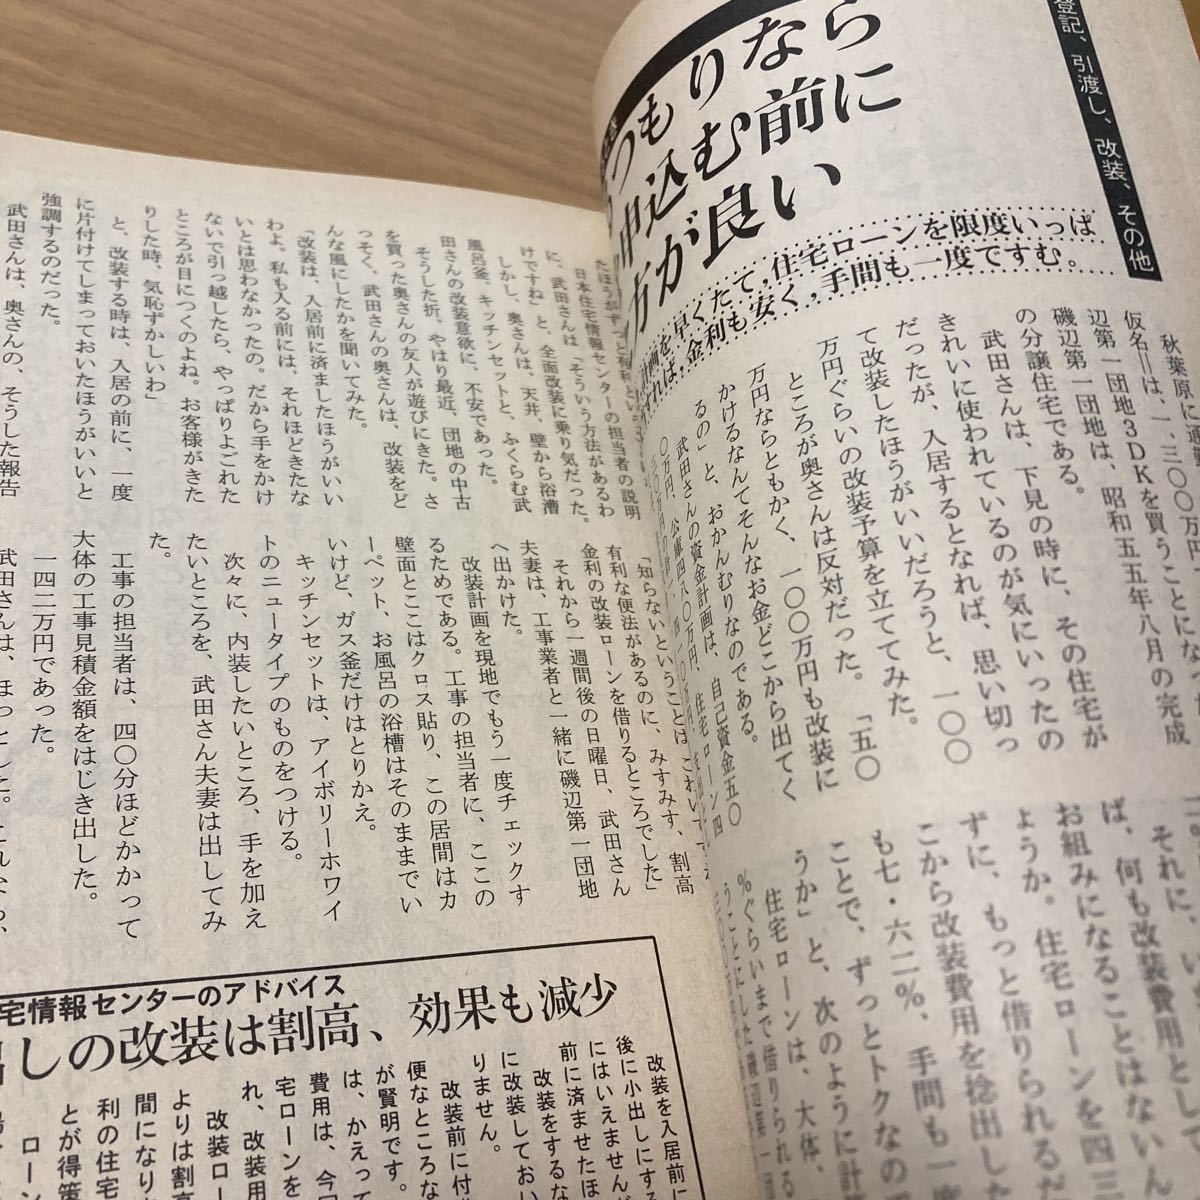 登記、引渡し、改装、その他
つもりなら
申込む前に
方が良い
計画を早くたて、住宅ローンを限度いっぱ
すれば、金利も安く、手間も一度ですむ。
秋葉原に通勤
仮名＝は、一、三〇〇万円
辺第一団地3DKを買うことになった
磯辺第一団地は、昭和五五年八月の完成
の分譲住宅である。
武田さんは、下見の時に、その住宅が
きれいに使われているのが気にいったの
だったが、入居するとなれば、思い切っ
て改装したほうがいいだろうと、一〇〇
万円ぐらいの改装予算を立ててみた。
ところが奥さんは反対だった。「五〇
万円ならともかく、一〇〇万円も改装に
かけるなんてそんなお金どこから出てく
るの」と、おかんむりなのである。
武田さんの資金計画は、自己資金五〇
〇万円、公庫四八〇万円、住宅ローン四
それに、いま
ば、何も改装費用として
お組みになることはないん
ようか。住宅ローンを四三
ずに、もっと借りられるだ
こから改装費用を捻出した
も七・六二％、手間も一度
ことで、ずっとトクなの
うか」と、次のように計
住宅ローンは、大体、
％ぐらいまで借りられる
うことにした磯辺第一
たほうがずっと有利という
日本住宅情報センターの担当者の説明
に、武田さんは「そういう方法があるわ
けですね」と、全面改装に乗り気だった。
しかし、奥さんは、天井、壁から浴槽
風呂釜、キッチンセットと、ふくらむ武
田さんの改装意欲に、不安であった。
そうした折、やはり最近、団地の中古
を買った奥さんの友人が遊びにきた。さ
っそく、武田さんの奥さんは、改装をど
んな風にしたかを聞いてみた。
「改装は、入居前に済ましたほうがいい
わよ。私も入る前には、それほどきたな
いとは思わなかったの。だから手をかけ
ないで引っ越したら、やっぱりよごれた
ところが目につくのよね。お客様がきた
りした時、気恥ずかしいわ」
と、改装する時は、入居の前に、一度
に片付けてしまっておいたほうがいいと
強調するのだった。
武田さんは、奥さんの、そうした報告
「知らないということは
有利な便法があるのに、みすみす、割高
金利の改装ローンを借りるところでした」
それから一週間後の日曜日、武田さん
夫妻は、工事業者と一緒に磯辺第一団地
へ出かけた。
改装計画を現地でもう一度チェックす
るためである。工事の担当者に、ここの
壁面とここはクロス貼り、この居間はカ
ーペット、お風呂の浴槽はそのままでい
いけど、ガス釜だけはとりかえ。
キッチンセットは、アイボリーホワイ
トのニュータイプのものをつける。
次々に、内装したいところ、手を加え
たいところを、武田さん夫妻は出してみ
た。
工事の担当者は、四〇分ほどかかって
大体の工事見積金額をはじき出した。
一四二万円であった。
武田さんは、ほっとした。
宅情報センターのアドバイス
しの改装は割高、効果も減少
改装を入居前に
後に小出しにする
にはいえませんが
前に済ませたほ
改装をするな
に改装してお
りません。
改装前に付
便なところな
が賢明です。
は、かえって
費用は、今回
宅ローンを
れ、改装用
改装ロー
よりは割高
間になり
利の住宅
とが得策
ローン